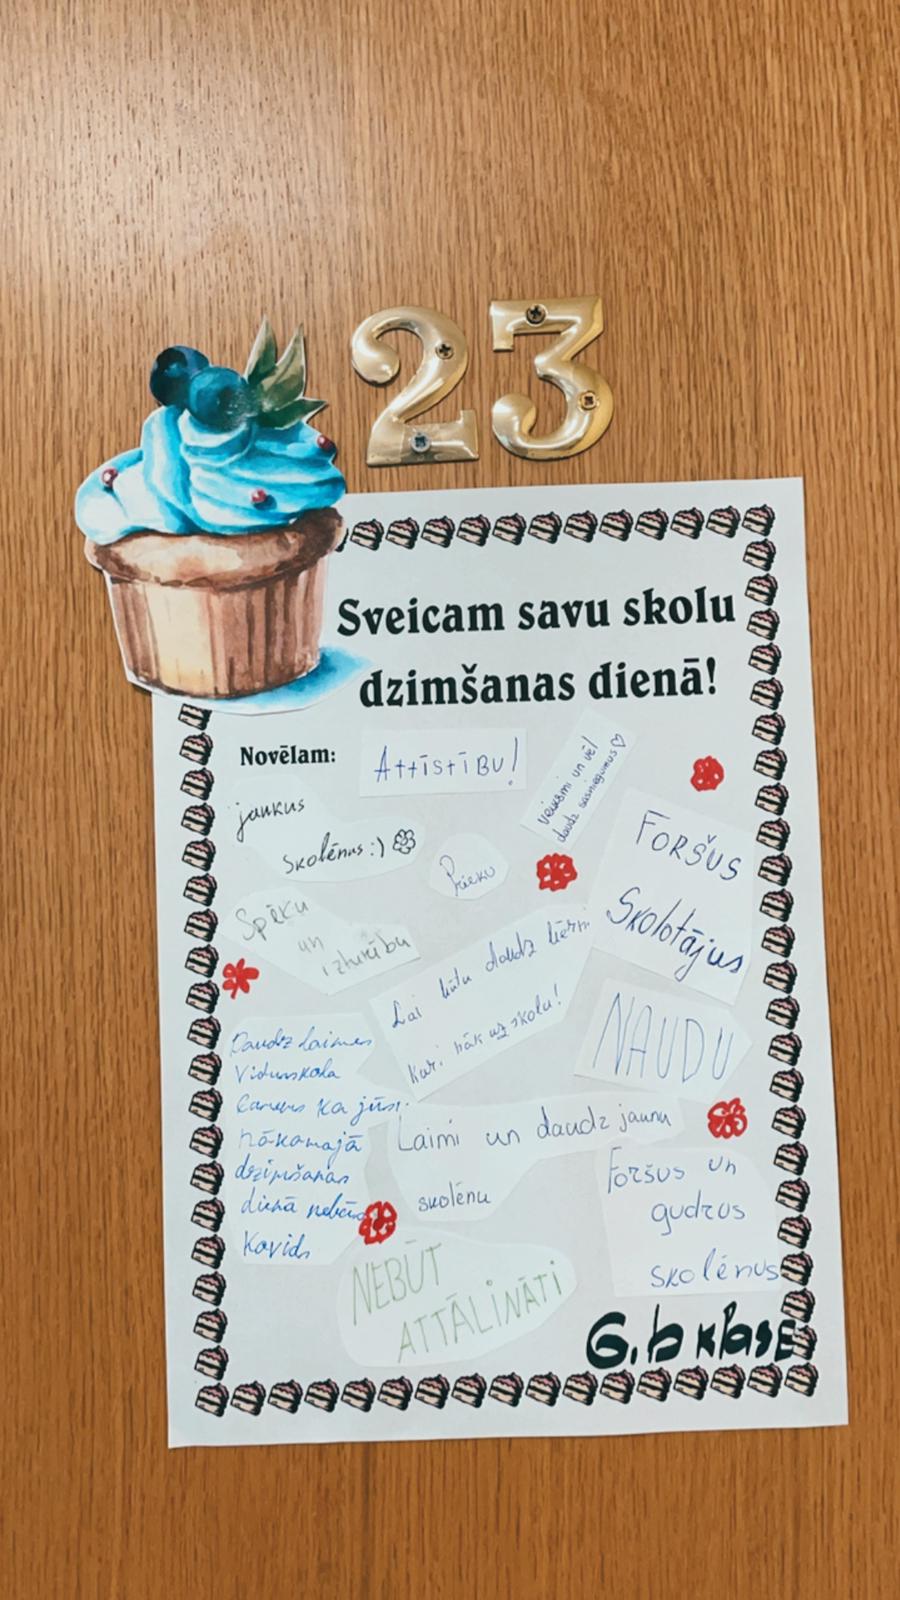 23
Sveicam savu skolu
dzimšanas dienā!
Novēlam:
ATTĪSTĪBU!
Veiksmi un vēl
daudz sasniegumus ♡
jaukus
skolēnus :)
Prieku
FORŠUS
Skolotājus
Spēku
un
izturību
Lai būtu daudz bērni
Kuri nāk uz skolu!
NAUDU
Daudz laimes
Vidusskola
ka jūsu
nākamajā
dzimšanas
dienā nebūs
Kovids
Laimi un daudz jaunu
skolēnu
Foršus un
gudrus
skolēnus
NEBŪT
ATTĀLINĀTI
6.b klase